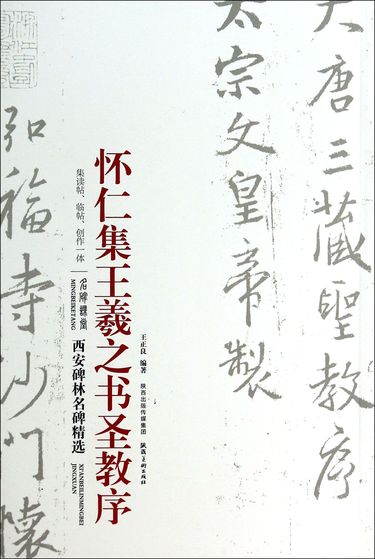 大唐三藏聖教序
太宗文皇帝製
弘福寺沙門懷
怀仁集王羲之书圣教序
集读帖、临帖、创作一体
名碑课堂
MINGBEIKETANG
西安碑林名碑精选
XI'ANBEILINMINGBEI
JINGXUAN
王正良 编著
陕西出版传媒集团
陕西美术出版社